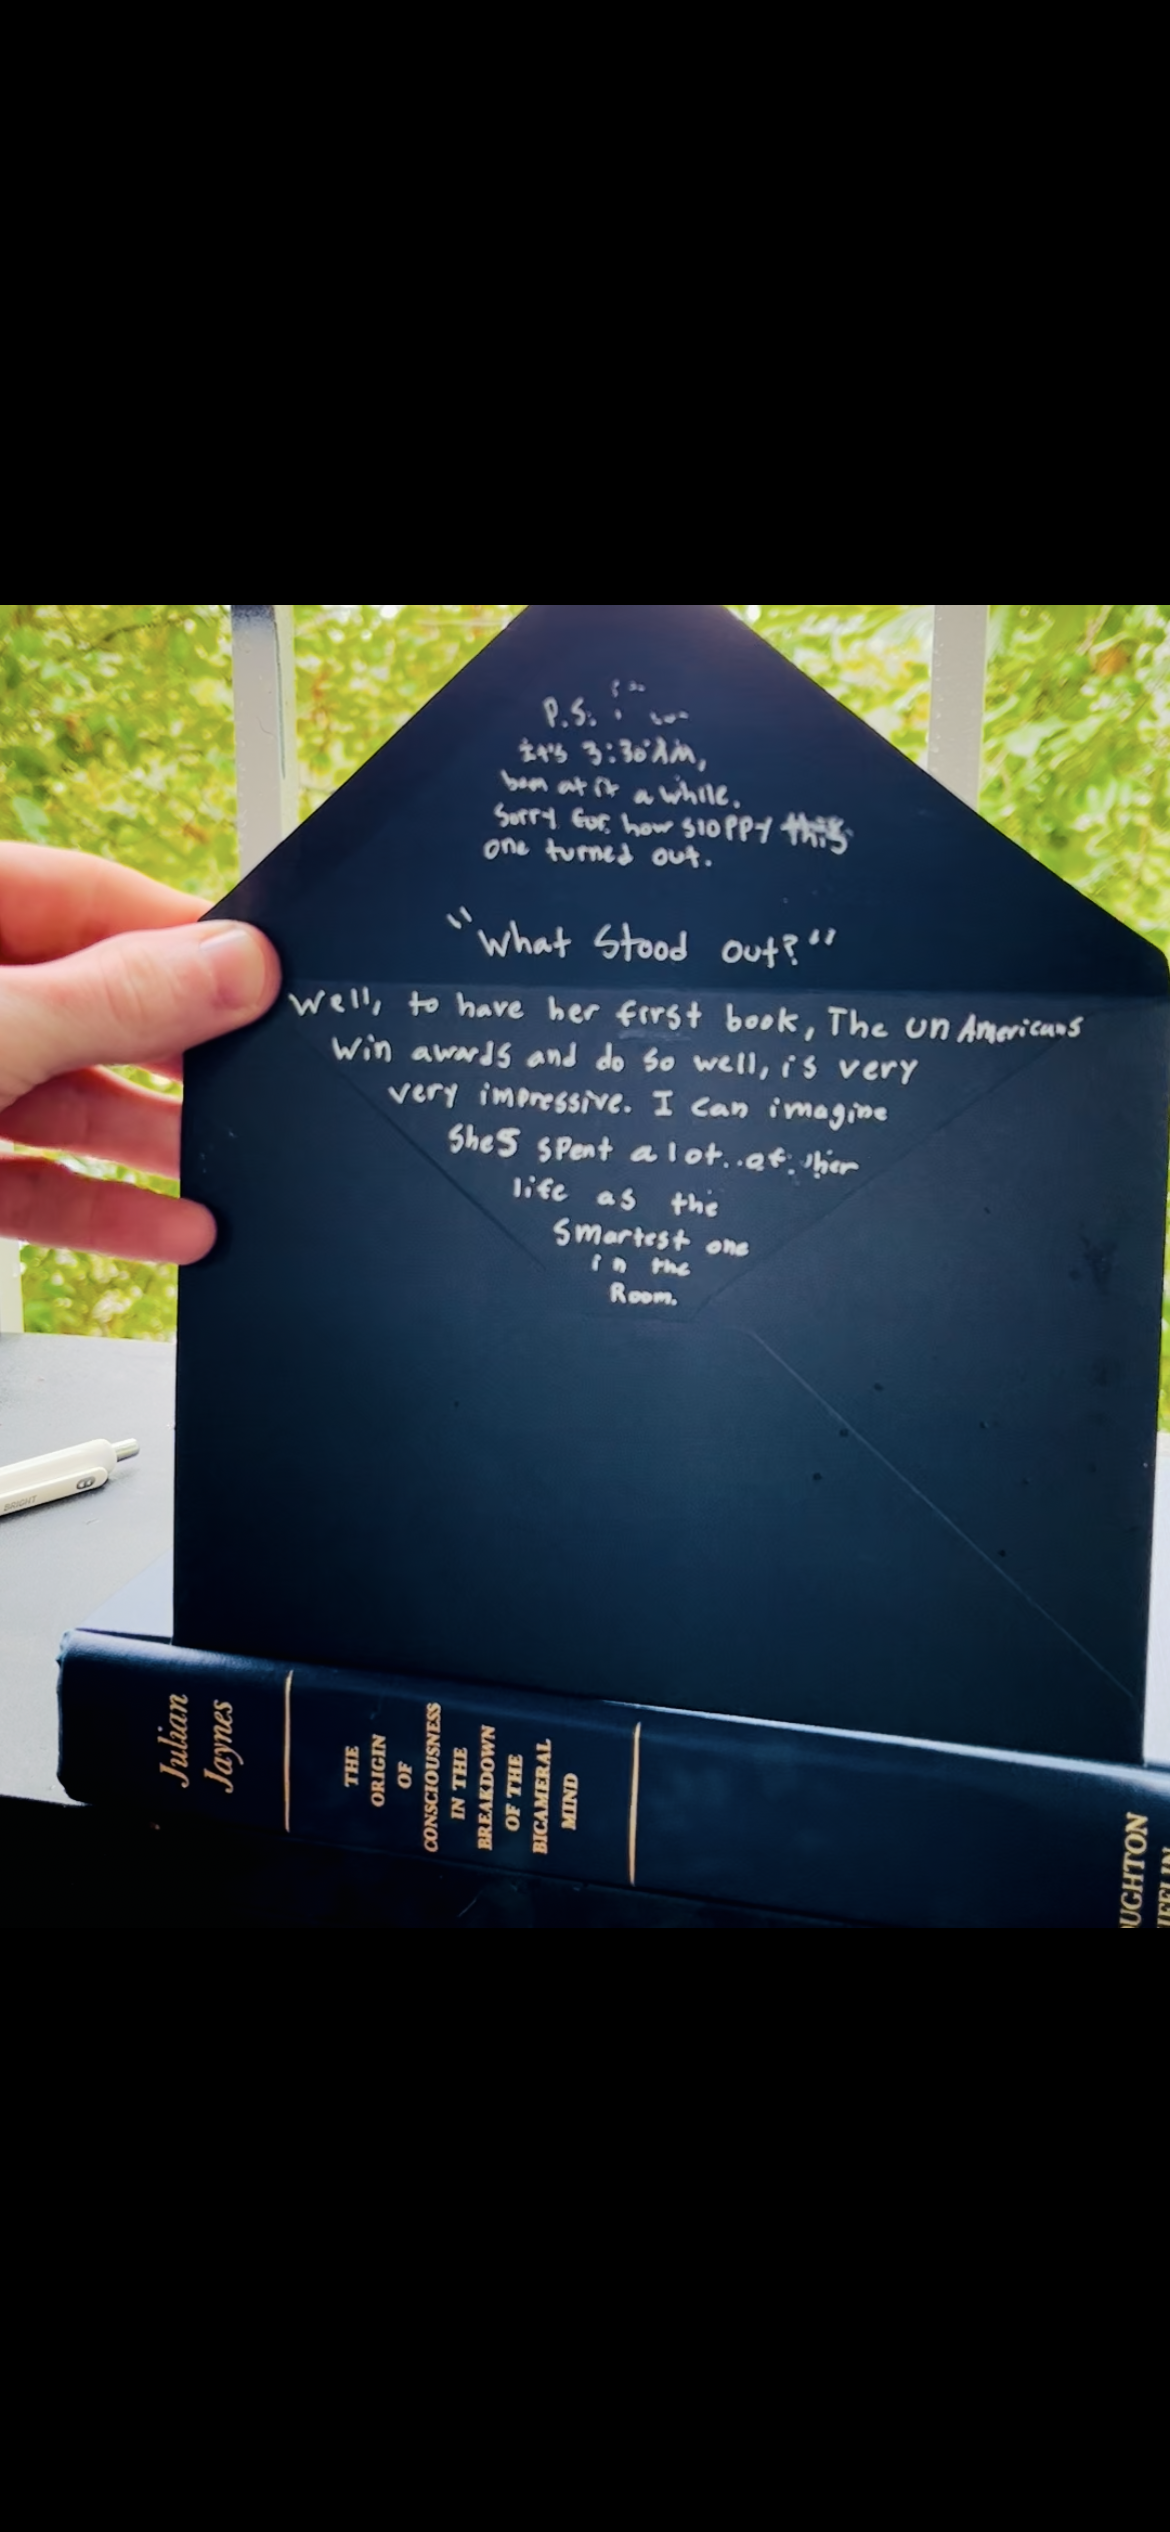 P.S.
it's 3:30 AM,
been at it a while.
Sorry for how sloppy this
one turned out.
"What Stood out?"
Well, to have her first book, The UnAmericans
Win awards and do so well, is very
very impressive. I can imagine
She5 spent a lot..of her
life as the
Smartest one
in the
Room.
BRIGHT
Julian
Jaynes
THE
ORIGIN
OF
CONSCIOUSNESS
IN THE
BREAKDOWN
OF THE
BICAMERAL
MIND
OUGHTON